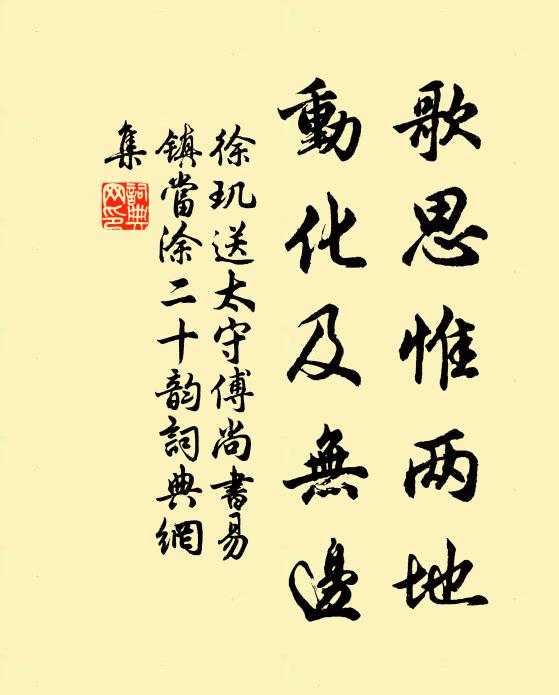 歌思惟两地
動化及無邊
徐玑送太守傅尚書易
鎮當涂二十韵詞典網
集
詞典
网印